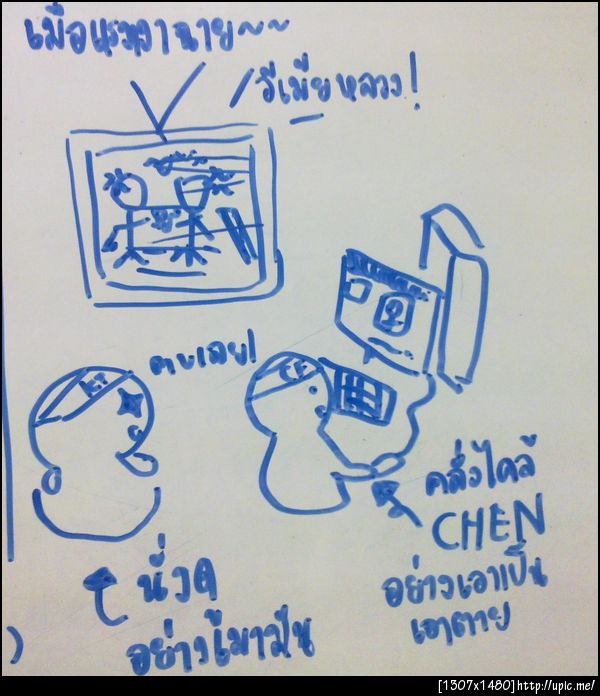 เมื่อแรงเงาฉาย~~
รีเมียหลวง!
ตบเลย!
CHEN
คลั่งไคล้
อย่างเอาเป็น
เอาตาย
นั่งดู
อย่างเมามัน
[1307x1480]http://upic.me/